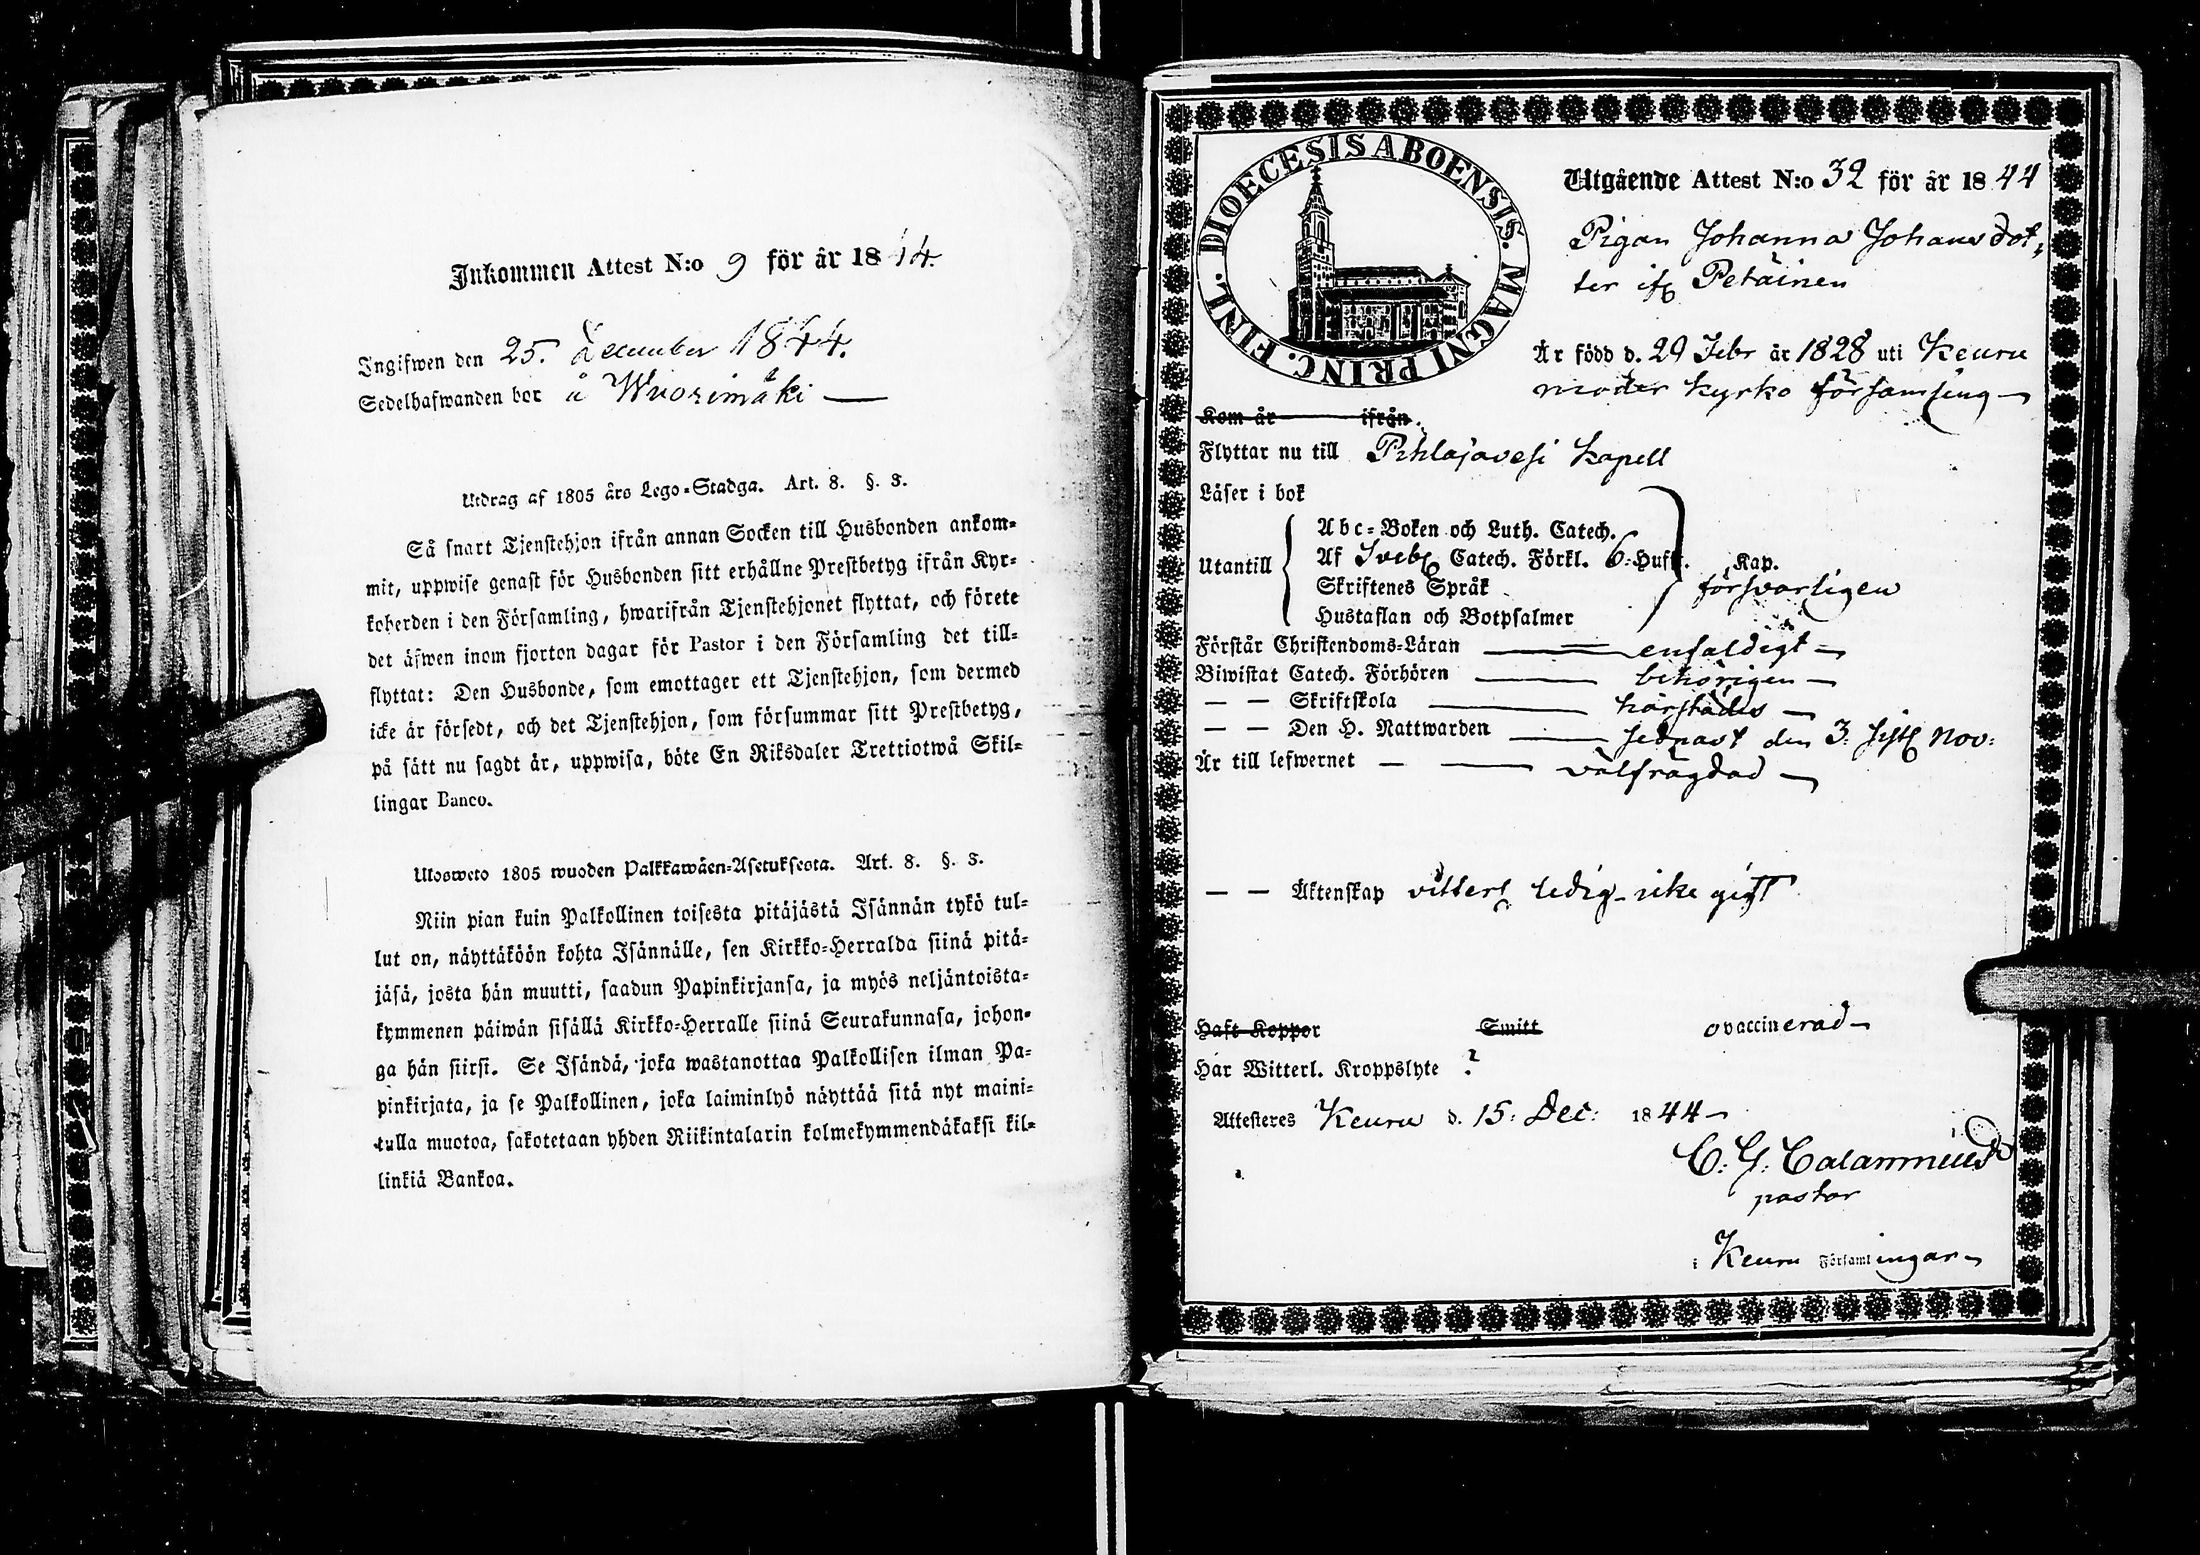 Inkommen Attest N:o 9 för år 1844.
Ingifwen den 25. December 1844.
Sedelhafwanden bor å Wuorimäki —
Utdrag af 1805 års Lego-Stadga. Art. 8. §. 3.
Så snart Tjenstehjon ifrån annan Socken till Husbonden ankom-
mit, uppwise genast för Husbonden sitt erhållne Prestbetyg ifrån Kyr-
koherden i den Församling, hwarifrån Tjenstehjonet flyttat, och förete
det äfwen inom fjorton dagar för Pastor i den Församling det till-
flyttat: Den Husbonde, som emottager ett Tjenstehjon, som dermed
icke är försedt, och det Tjenstehjon, som försummar sitt Prestbetyg,
på sätt nu sagdt är, uppwisa, böte En Riksdaler Trettiotwå Skil-
lingar Banco.
Uloswето 1805 wuoden Palkkawäen-Asetuksesta. Art. 8. §. 3.
Niin pian kuin Palkollinen toisesta pitäjästä Isännän tykö tul-
lut on, näyttäköön kohta Isännälle, sen Kirkko-Herralda siinä pitä-
jäsä, josta hän muutti, saadun Papinkirjansa, ja myös neljäntoista-
kymmenen päiwän sisällä Kirkko-Herralle siinä Seurakunnasa, johon-
ga hän siirsi. Se Isändä, joka wastanottaa Palkollisen ilman Pa-
pinkirjata, ja se Palkollinen, joka laiminlyö näyttää sitä nyt maini-
tulla muotoa, sakotetaan yhden Riikintalarin kolmekymmendäkaksi kil-
linkiä Bankoa.
DIOECESIS ABOENSIS. MAGNI PRINC. FINL.
Utgående Attest N:o 32 för år 1844
Pigan Johanna Johansdot,,
ter ifr Petäinen
Är född d. 29 Febr år 1828 uti Keuru
moder kyrko församling
Kom år ifrån
Flyttar nu till Pihlajavesi Kapell
Läser i bok
Utantill
Abc-Boken och Luth. Catech.
Af Sveb Catech. Förkl. 6: Hufst. Kap.
Skriftenes Språk försvarligen
Hustaflan och Botpsalmer
Förstår Christendoms-Läran — enfaldigt —
Biwistat Catech. Förhören — behörigen —
— — Skriftskola — härstädes —
— — Den H. Nattwarden — sednast den 3: sistl Nov:
Är till lefwernet — — välfrägdad —
— — Äktenskap vitterl ledig icke gift
Haft Koppor Smitt ovaccinerad —
Har Witterl. Kroppslyte ?
Attesteres Keuru d. 15: Dec: 1844 —
C: G: Calamnius
pastor
i Keuru Församlingar